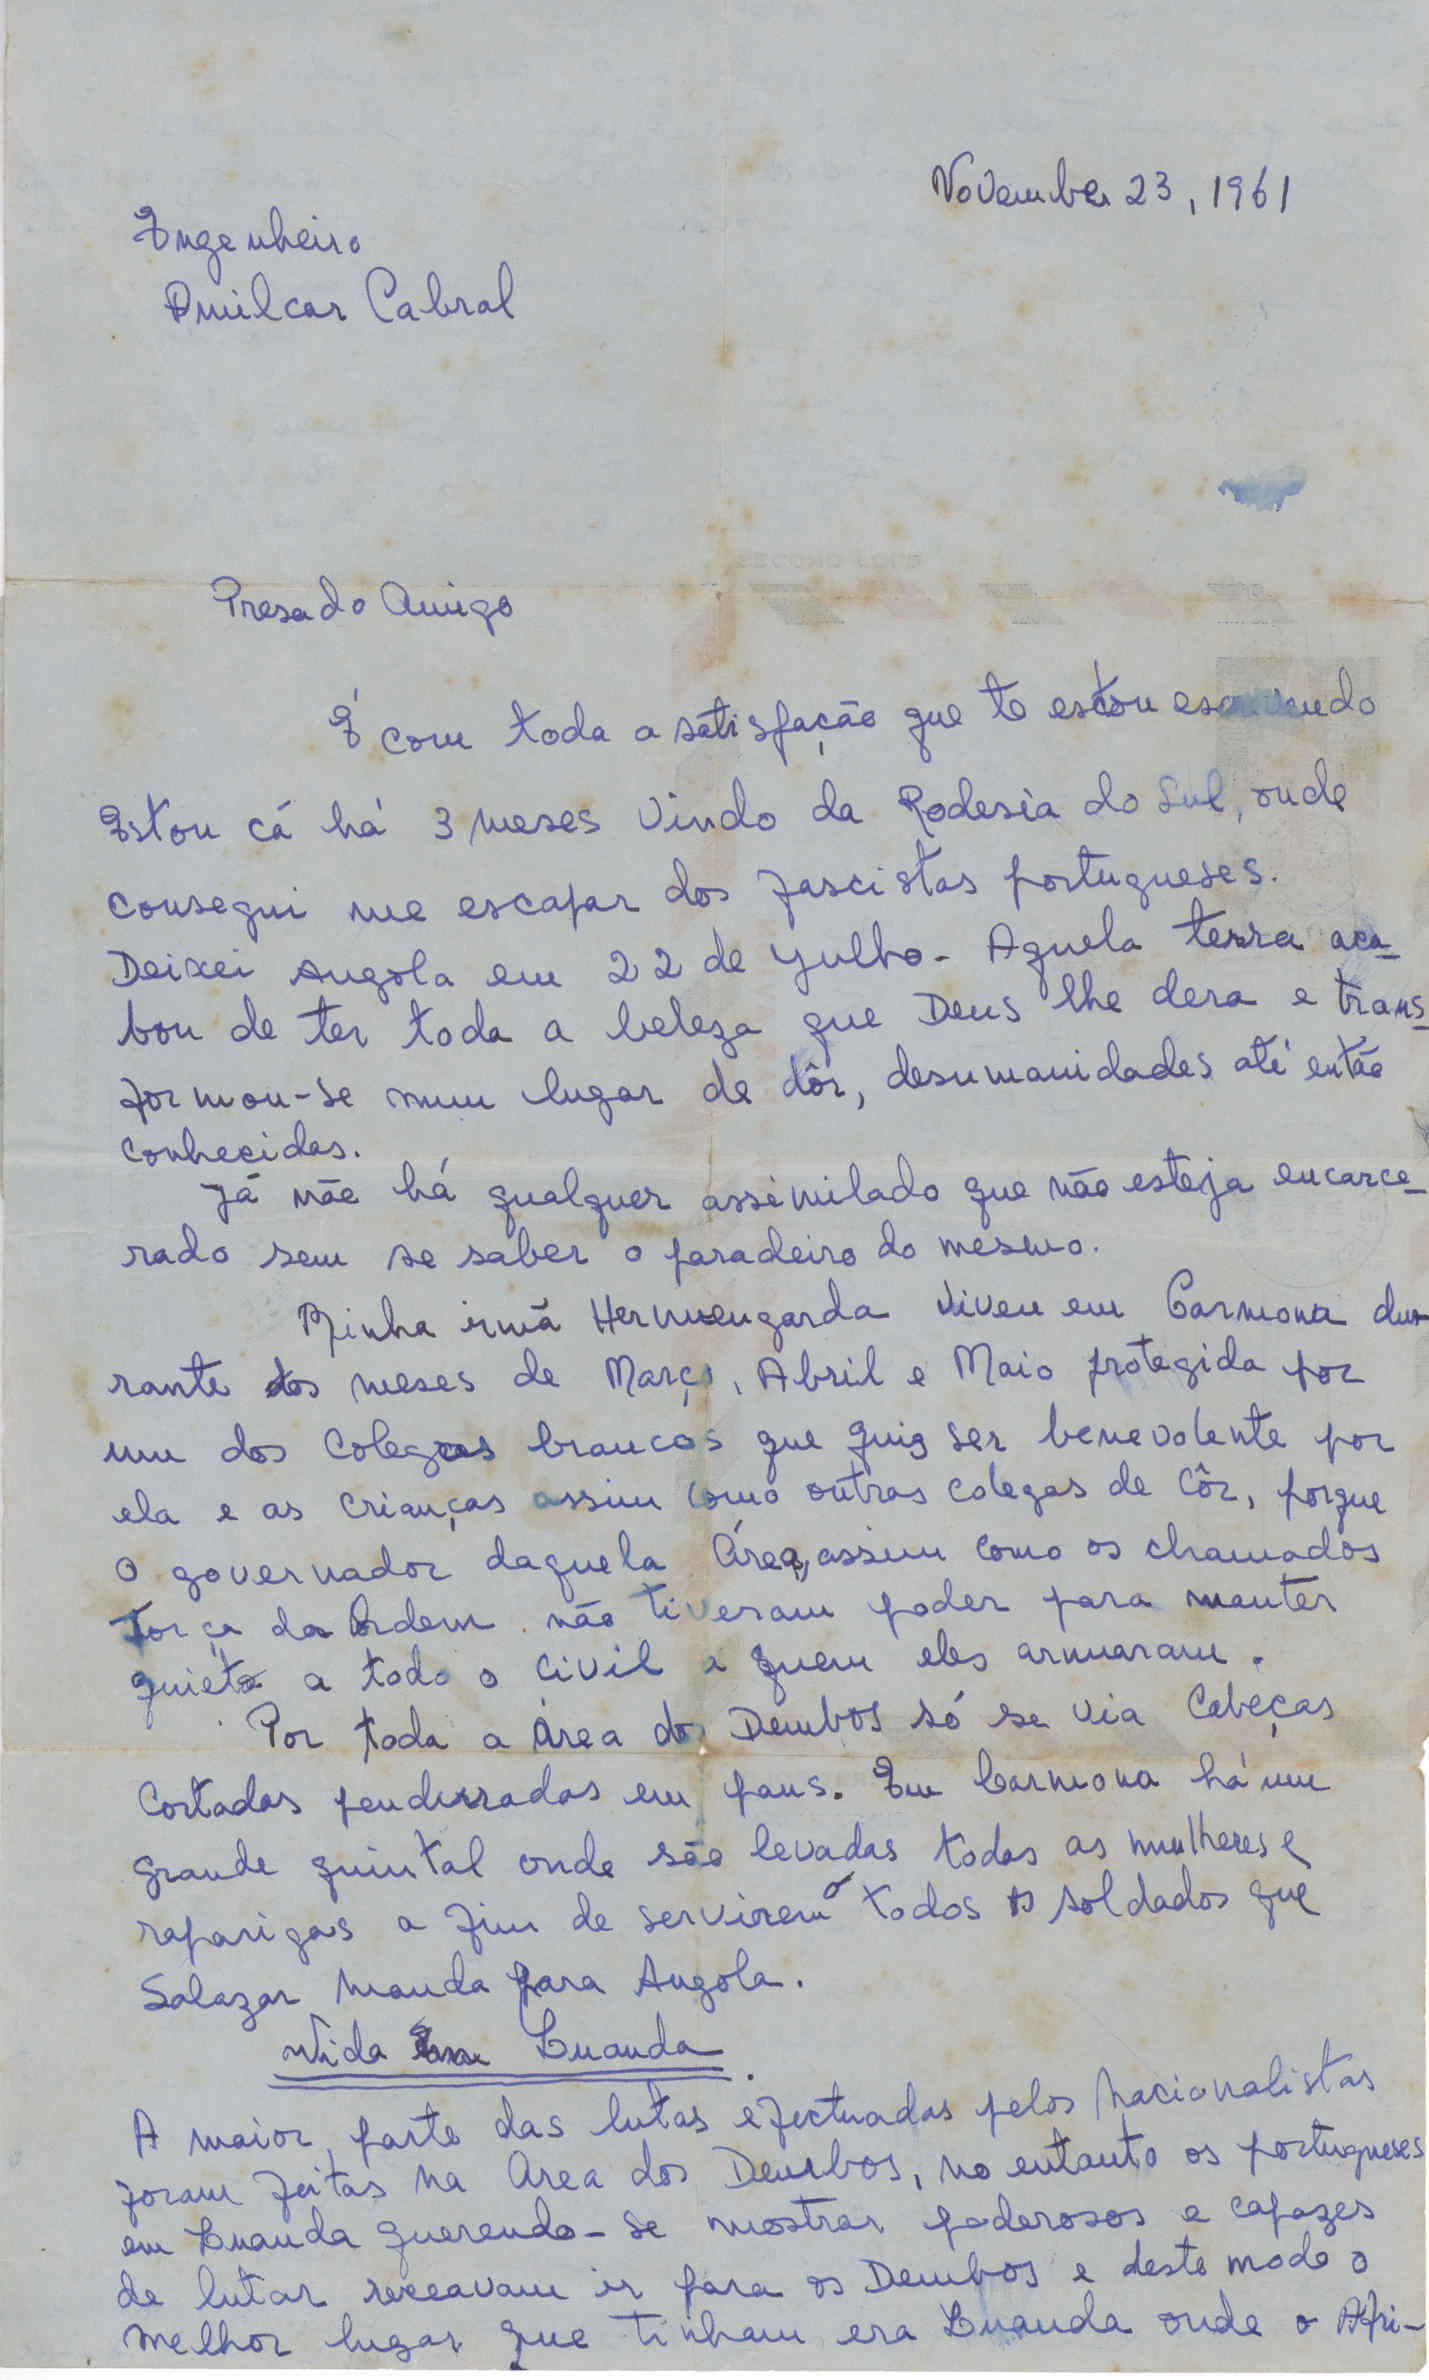 November 23, 1961
Engenheiro
Amilcar Cabral
Presado Amigo
É com toda a satisfação que te estou escrevendo
Estou cá há 3 meses vindo da Rodesia do Sul, onde
consegui me escapar dos fascistas portugueses.
Deixei Angola em 22 de Julho - Aquela terra aca-
bou de ter toda a beleza que Deus lhe dera e trans-
formou-se num lugar de dôr, desumanidades até então
conhecidas.
Já não há qualquer assimilado que não esteja encarce-
rado sem se saber o paradeiro do mesmo.
Minha irmã Hermengarda viveu em Carmona du-
rante os meses de Março, Abril e Maio protegida por
um dos colegas brancos que quis ser benevolente por
ela e as crianças assim como outras colegas de côr, porque
o governador daquela Área, assim como os chamados
Força da Ordem não tiveram poder para manter
quieto a todo o civil a quem eles armaram.
Por toda a Área dos Dembos só se via Cabeças
Cortadas penduradas em paus. Em Carmona há um
grande quintal onde são levadas todas as mulheres e
raparigas a fim de servirem a todos os soldados que
Salazar manda para Angola.
Vida em Luanda
A maior parte das lutas efectuadas pelos nacionalistas
foram feitas na Área dos Dembos, no entanto os portugueses
em Luanda querendo-se mostrar poderosos e capazes
de lutar receavam ir para os Dembos e deste modo o
melhor lugar que tinham era Luanda onde o Afri-